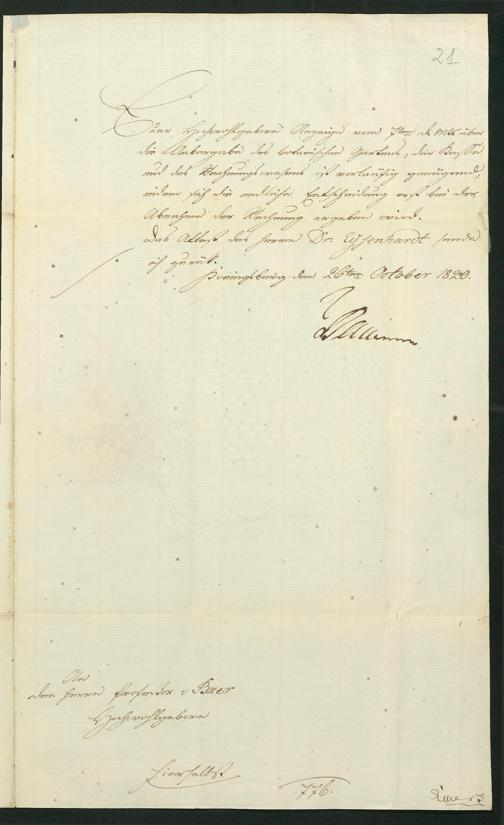 21
Euer Hochwohlgeboren Anzeige vom 7ten d. Mts über
die Uebergabe des botanischen Gartens, der Kasse
und des Rechnungswesens ist vorläufig genügend,
indem sich die endliche Entscheidung erst bei der
Abnahme der Rechnung ergeben wird.
Das Attest des Herrn Dr. Eysenhardt sende
ich zurück.
Koenigsberg den 26ten October 1820.
An
den Herrn Professor v Baer
Hochwohlgeboren
hierselbst
776.